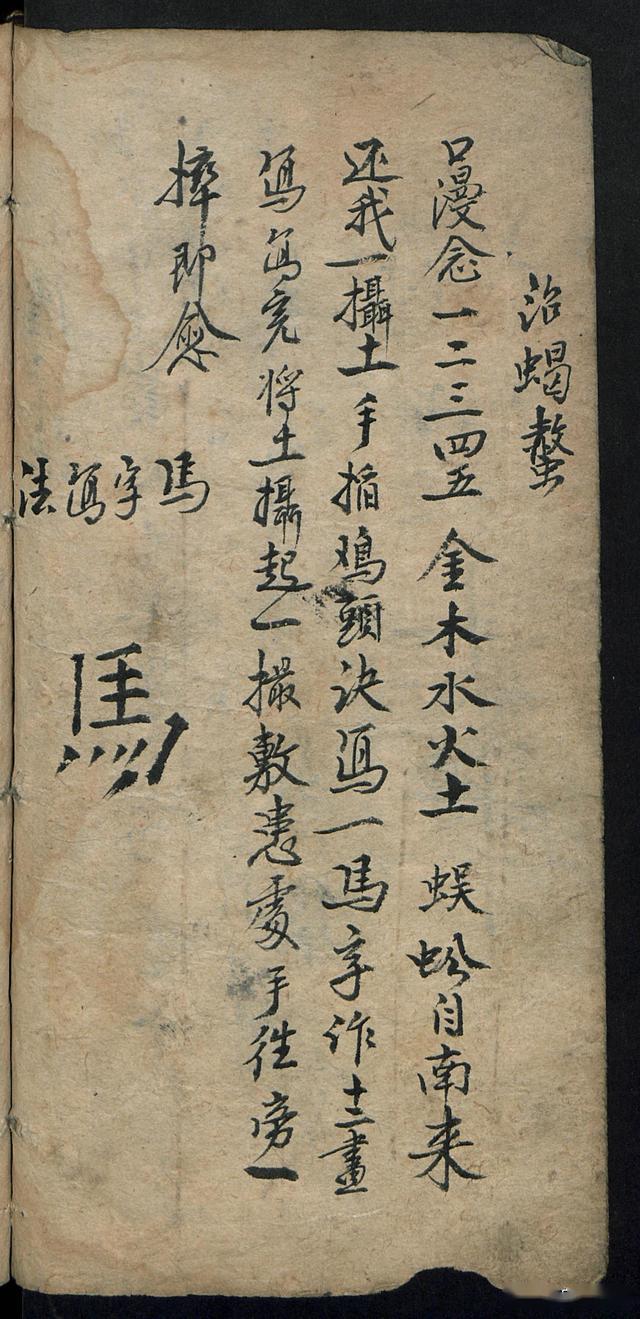 治蝎螫
口漫念一二三四五金木水火土蜈蚣自南来
还我一攝土手掐鸡頭决寫一馬字作十二畫
寫寫完将土攝起一撮敷患處手往旁一
摔即愈
馬字寫法
馬